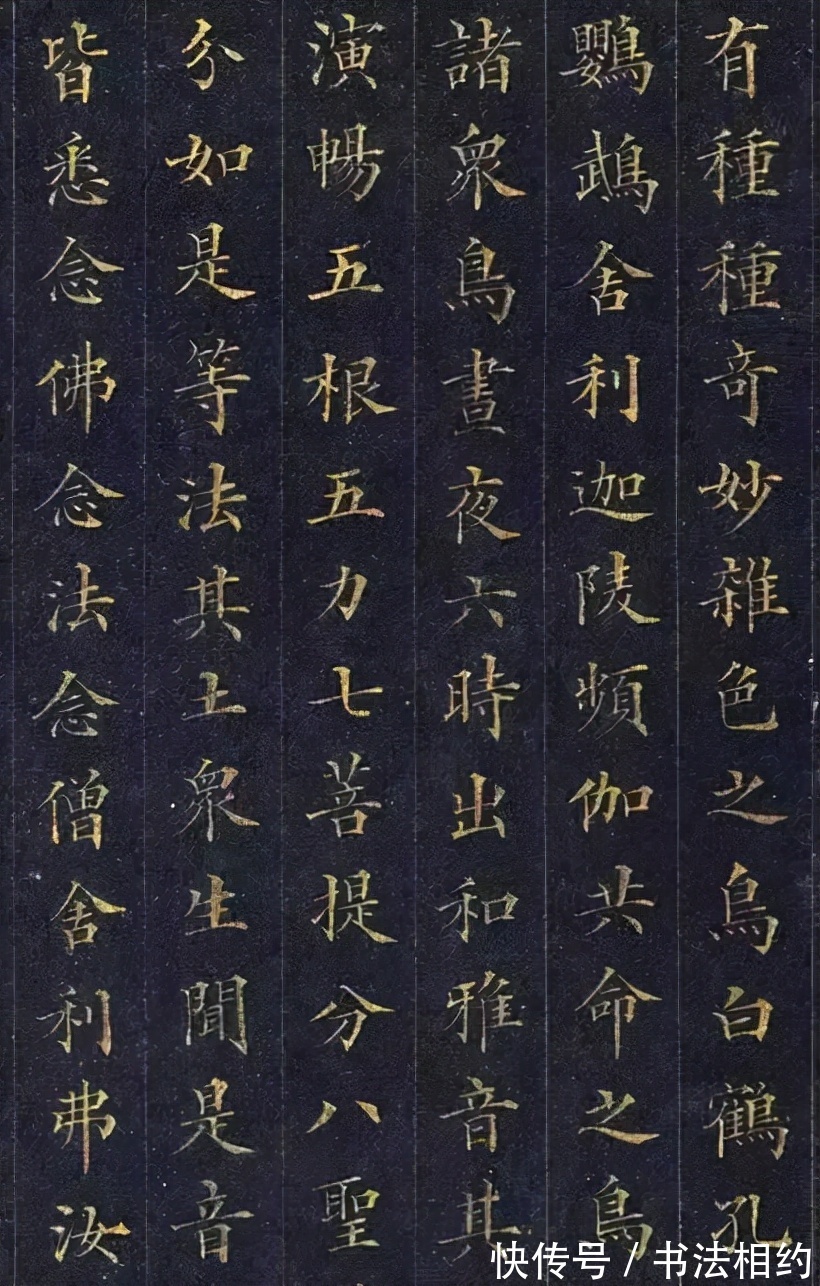 有種種奇妙雜色之鳥白鶴孔
鸚鵡舍利迦陵頻伽共命之鳥
諸眾鳥晝夜六時出和雅音其
演暢五根五力七菩提分八聖
分如是等法其土眾生聞是音
皆悉念佛念法念僧舍利弗汝
快传号 / 书法相约